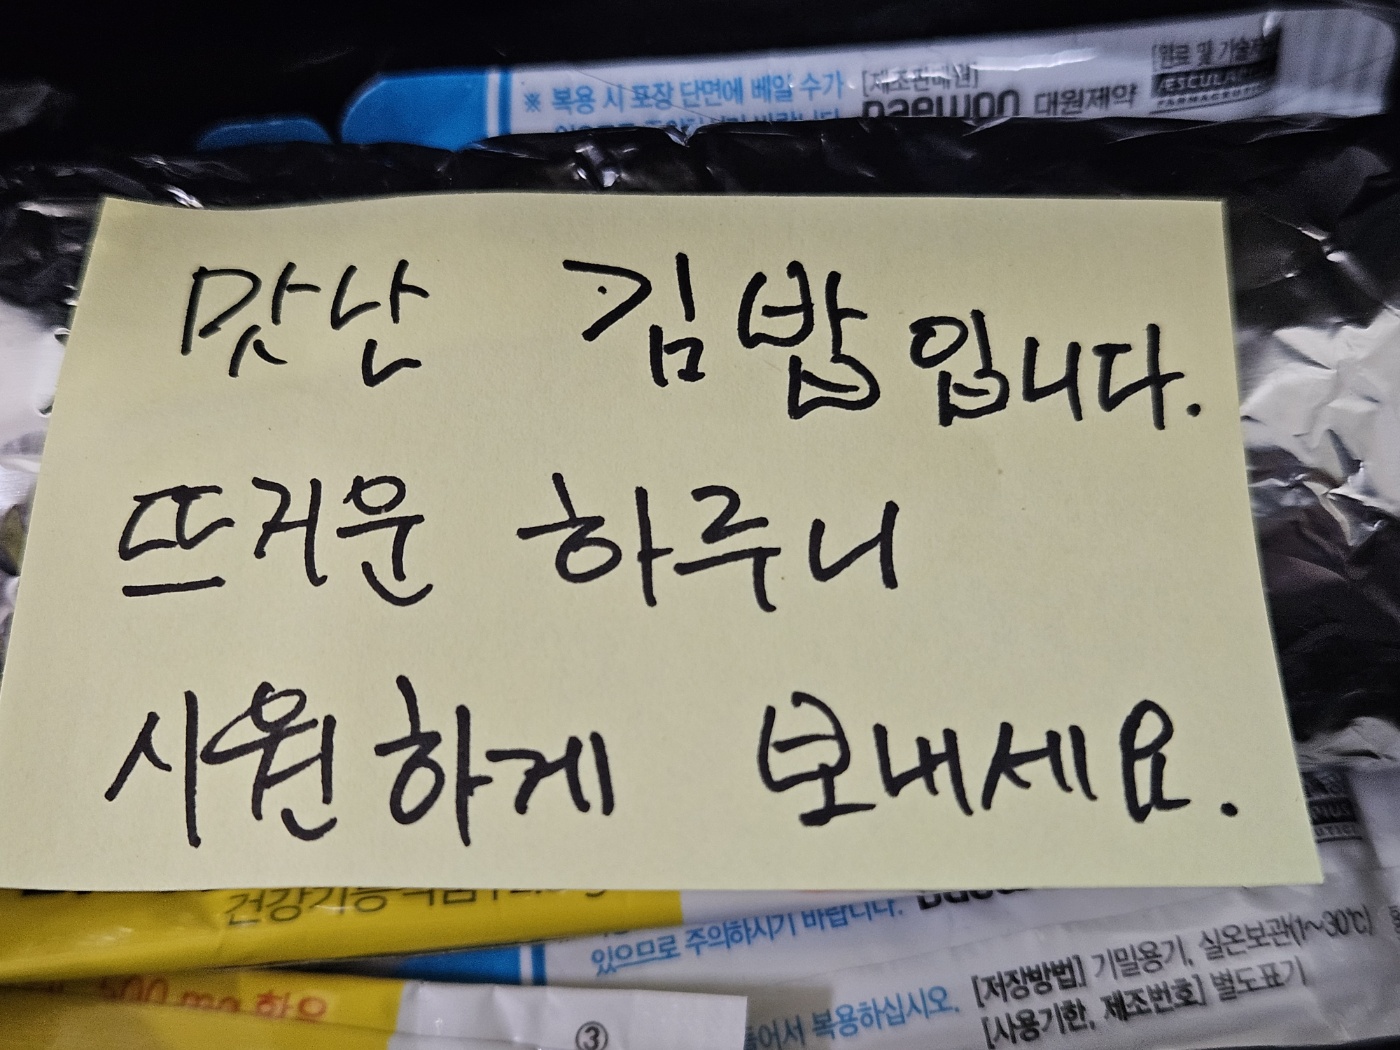 ※ 복용 시 포장 단면에 베일 수가
[제조판매원]
Daewon 대원제약
맛난 김밥입니다.
뜨거운 하루니
시원하게 보내세요.
건강기능식품
있으므로 주의하시기 바랍니다.
500 mg 함유
③
복용하십시오.
[저장방법] 기밀용기, 실온보관(1~30℃)
[사용기한, 제조번호] 별도표기